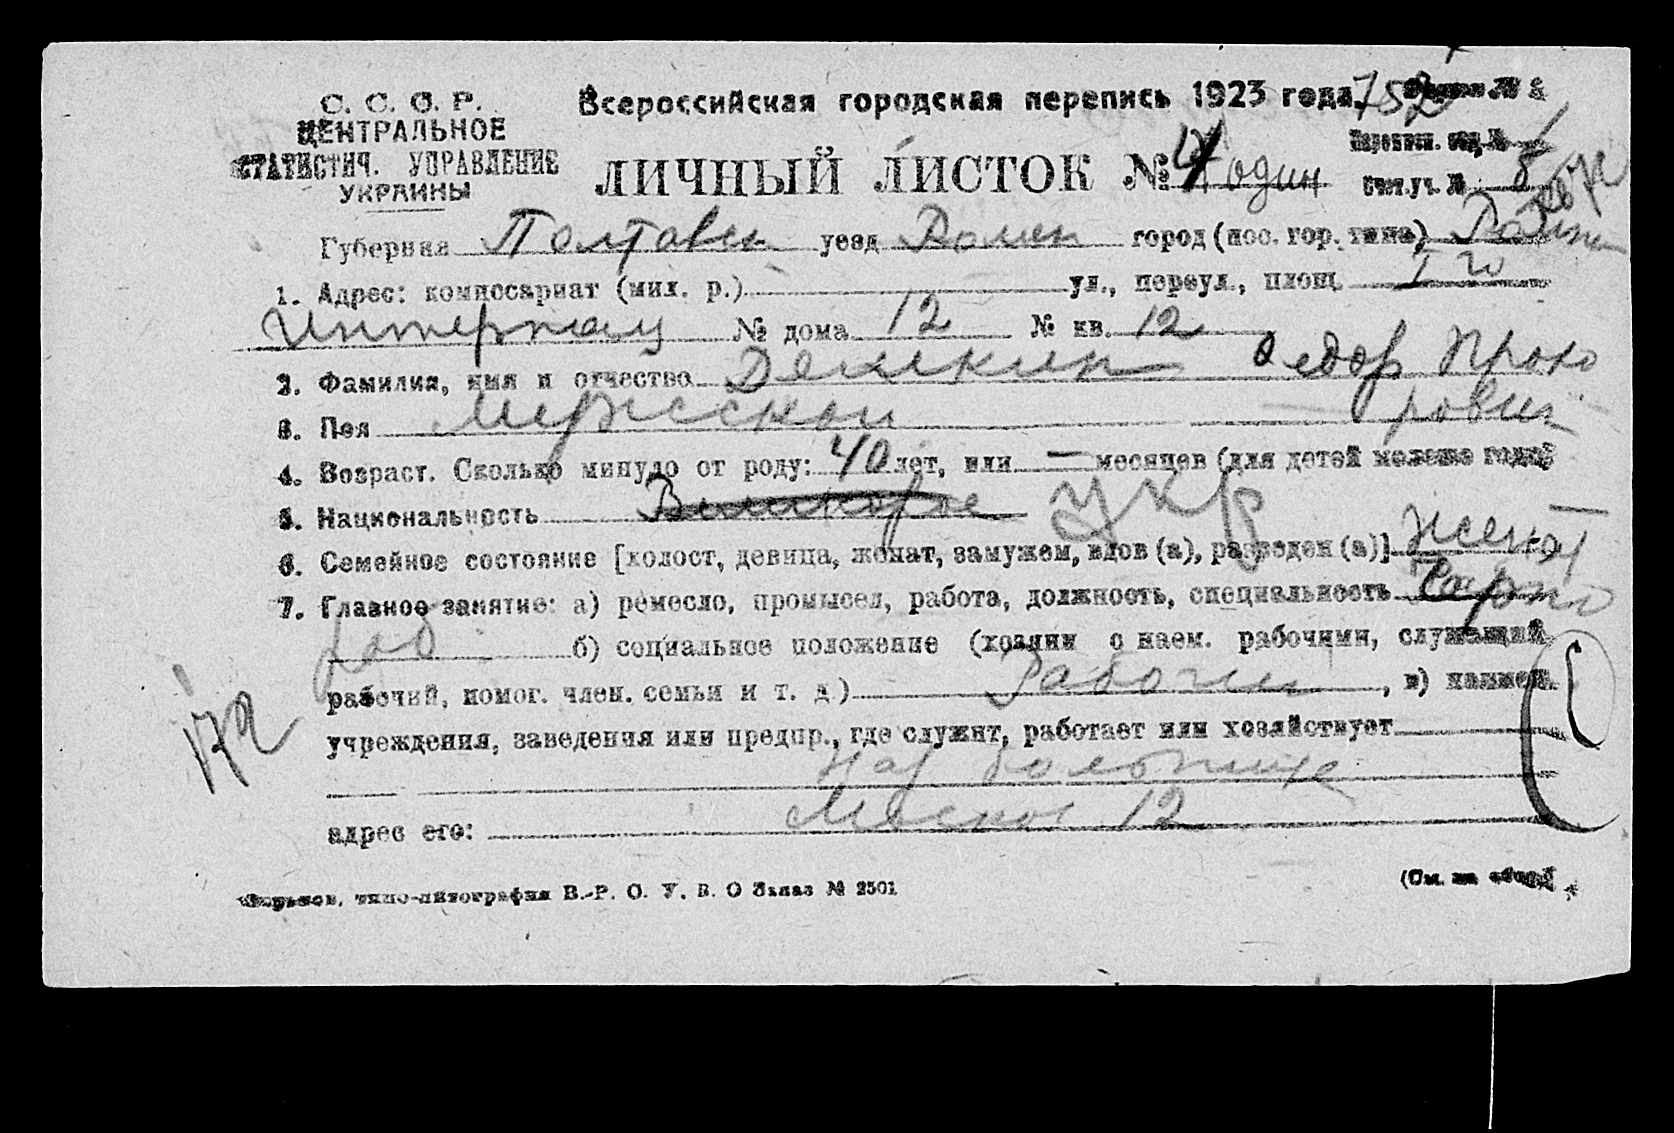 С. С. С. Р.
Всероссийская городская перепись 1923 года. 752
ЦЕНТРАЛЬНОЕ
СТАТИСТИЧ. УПРАВЛЕНИЕ
УКРАИНЫ
ЛИЧНЫЙ ЛИСТОК № один
Счет. уч. № 8
Губерния Полтавск уезд Ромен город (пос. гор. типа)
1. Адрес: комиссариат (мил. р.) ул., переул., площ. I го
Интернац № дома 12 № кв. 12
2. Фамилия, имя и отчество Федор Проко
рович
3. Пол Мужской
4. Возраст. Сколько минуло от роду: 40 лет, или — месяцев (для детей моложе года)
5. Национальность Великорос укр
6. Семейное состояние [холост, девица, женат, замужем, вдов (а), разведен (а)] женат
7. Главное занятие: а) ремесло, промысел, работа, должность, специальность
б) социальное положение (хозяин с наем. рабочими, служащий,
рабочий, помог. член. семьи и т. д.) Рабочий, в) наимен.
учреждения, заведения или предпр., где служит, работает или хозяйствует
адрес его: 12
172
Харьков, типо-литография В.-Р. О. У. В. О Заказ № 2501
(См. на обор.)